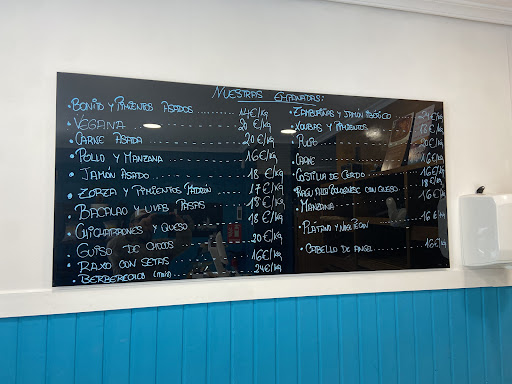 NUESTRAS EMPANADAS:
• BONITO Y PIMIENTOS ASADOS ........ 14€/kg
• VEGANA 20 €/kg
• CARNE ASADA 20€/kg
• POLLO Y MANZANA 16€/kg
• JAMÓN ASADO 18 €/kg
• ZORZA Y PIMIENTOS PADRÓN 17€/kg
• BACALAO Y UVAS PASAS 18€/kg
• CHICHARRONES Y QUESO 18 €/kg
• GUISO DE CHOCOS 20€/kg
• RAXO CON SETAS 16€/kg
• BERBERECHO (maiz) 24€/kg
• ZAMBURIÑAS Y JAMÓN IBÉRICO 24€/kg
• XOUBAS Y PIMIENTOS 18€/kg
• PULPO 20€/kg
• CARNE 16€/kg
• COSTILLA DE CERDO 16€/kg
• RAGÚ A LA BOLOGNESE CON QUESO 18€/kg
• MANZANA 16€/kg
• PLÁTANO Y NUEZ PECAN 16€/kg
• CABELLO DE ANGEL 16€/kg